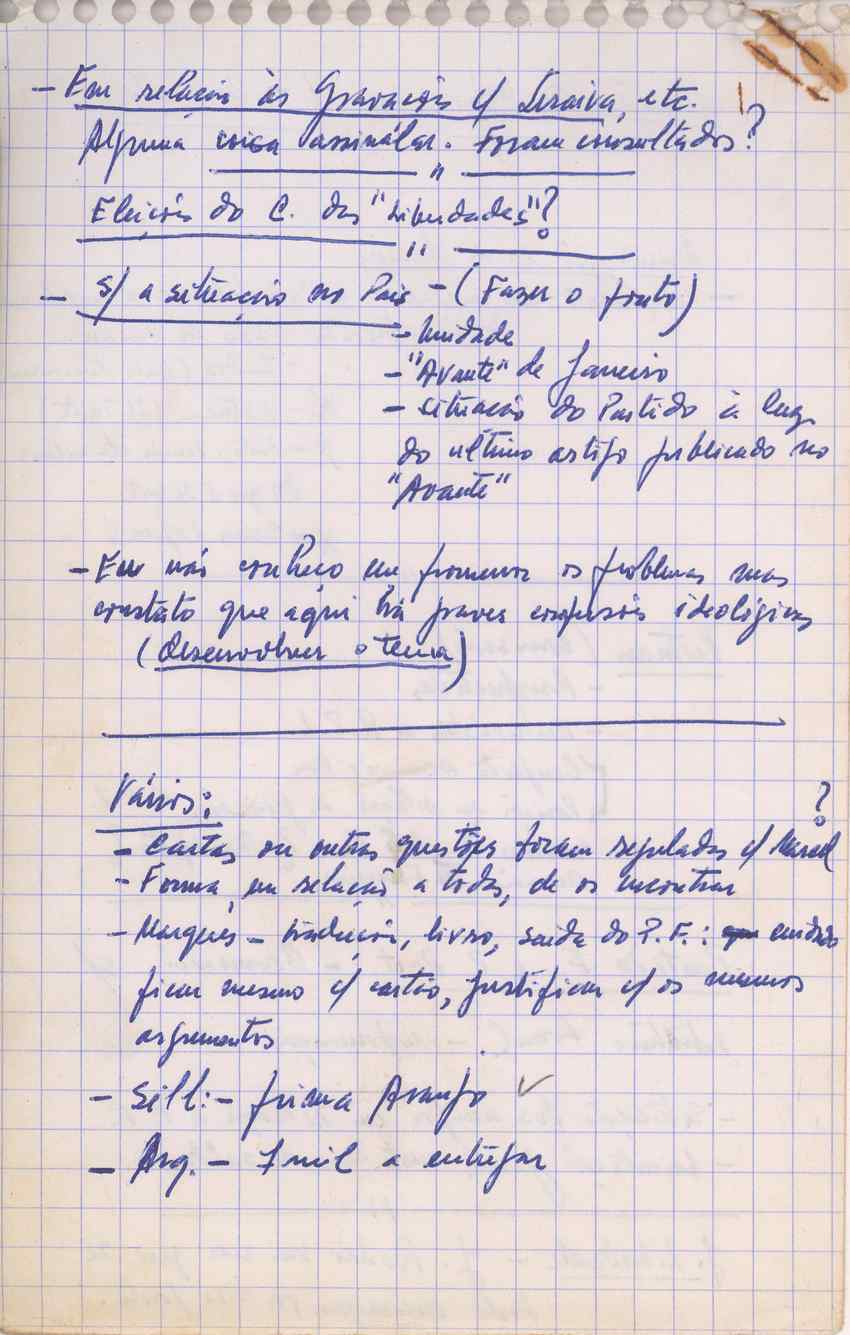 - Em relação às Gravações c/ Saraiva, etc.
Alguma coisa assinalar. Foram consultados?
"
Eleições do C. das "Liberdades"?
"
- s/ a situação no País - (Fazer o ponto)
- Unidade
- "Avante" de Janeiro
- situação do Partido à luz
do ultimo artigo publicado no
"Avante"
- Eu não conheço em pormenor os problemas mas
constato que aqui há graves confusões ideológicas
(Desenvolver o tema)
Vários:
?
- Cartas ou outras questões foram reguladas c/
- Forma, em relação a todos, de os encontrar
- Marques - tradução, livro, saída do P. F.:
ficar mesmo c/ cartão, justificar c/ os mesmos
argumentos
- Sell: - prima Araujo
- Arg. - 1 mil a entregar